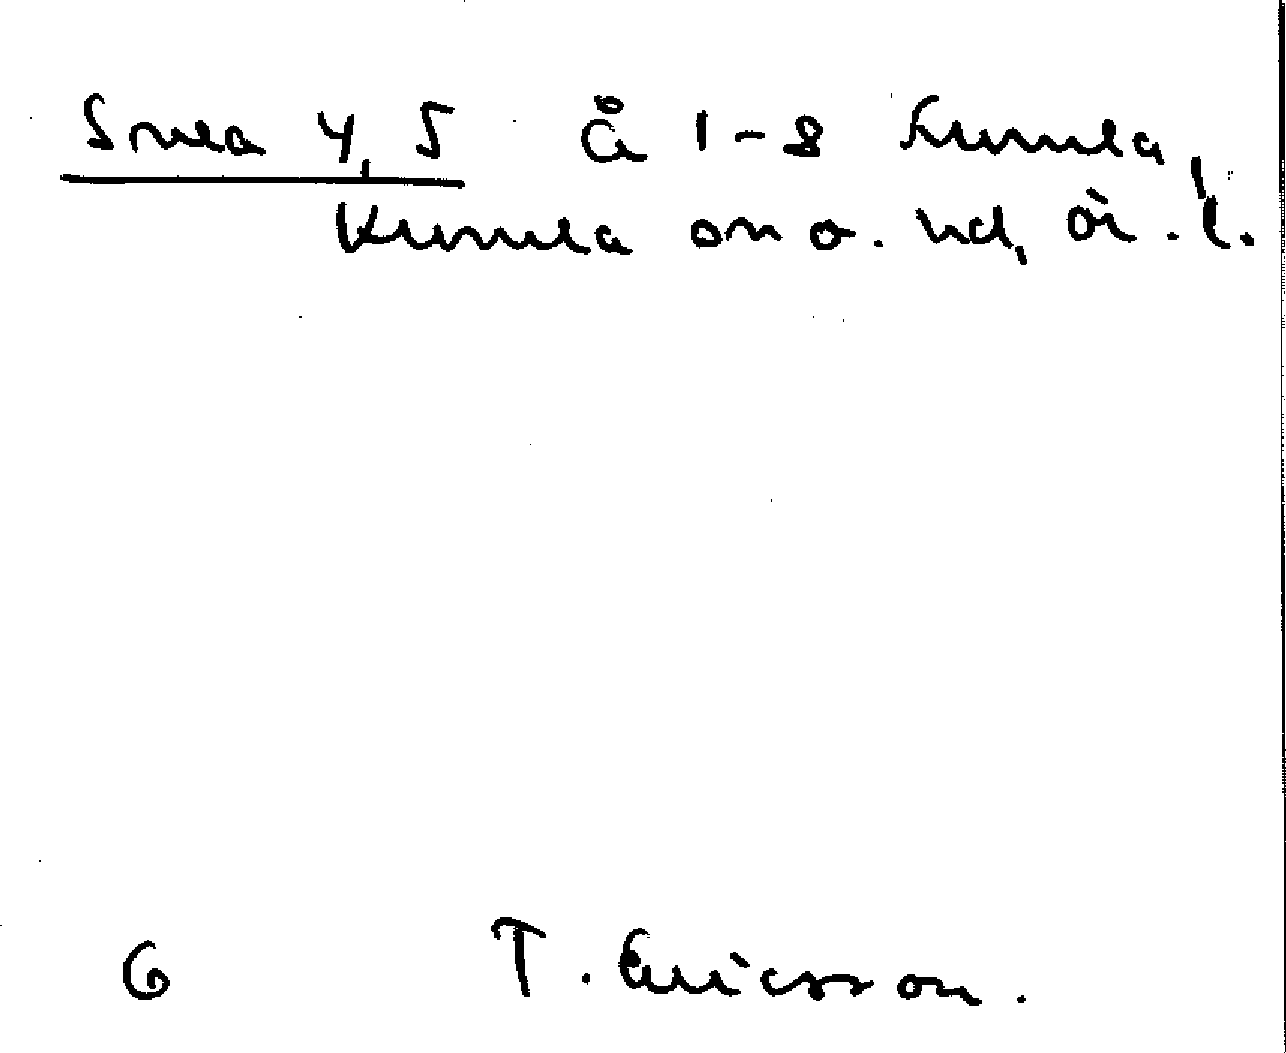 Svea 4, 5 å 1-8 Kumla,
Kumla sn o. hd, Ör. l.
6 T. Ericsson.